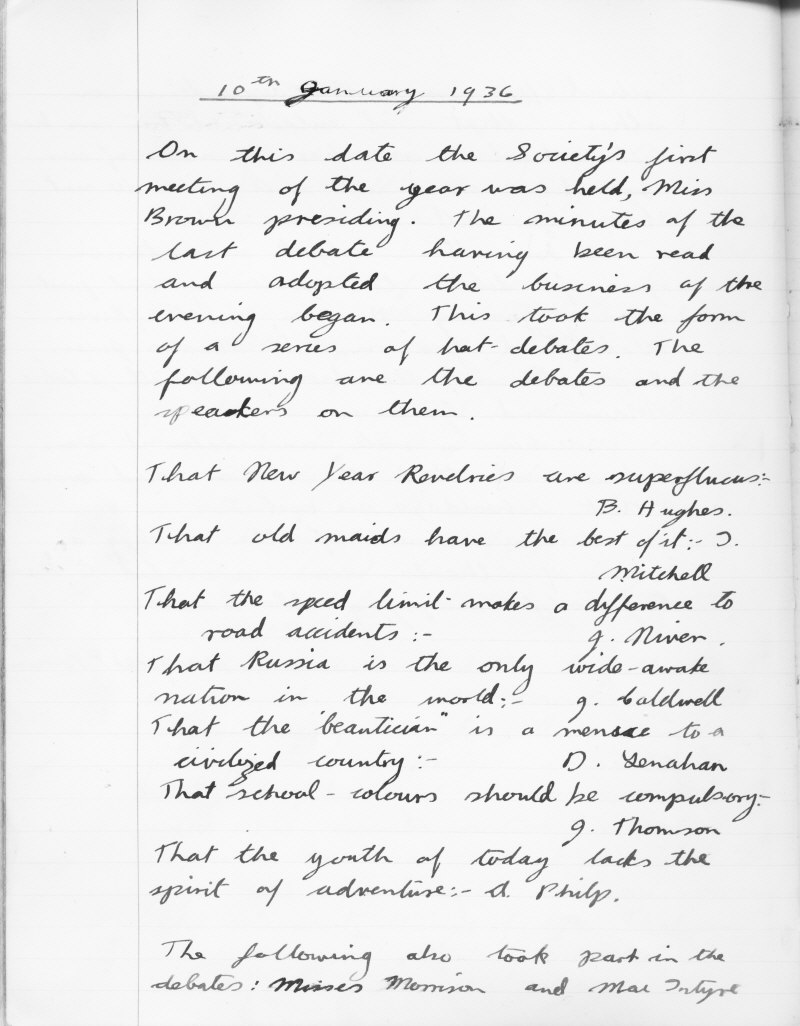 10th January 1936
On this date the Society's first
meeting of the year was held, Miss
Brown presiding. The minutes of the
last debate having been read
and adopted the business of the
evening began. This took the form
of a series of hat-debates. The
following are the debates and the
speakers on them.
That New Year Revelries are superfluous:-
B. Hughes.
That old maids have the best of it:- I.
Mitchell
That the speed limit makes a difference to
road accidents:- J. Niven.
That Russia is the only wide-awake
nation in the world:- J. Caldwell
That the "beautician" is a menace to a
civilized country:- D. Lenahan
That school-colours should be compulsory:-
J. Thomson
That the youth of today lacks the
spirit of adventure:- A. Philp.
The following also took part in the
debates: Misses Morrison and MacIntyre